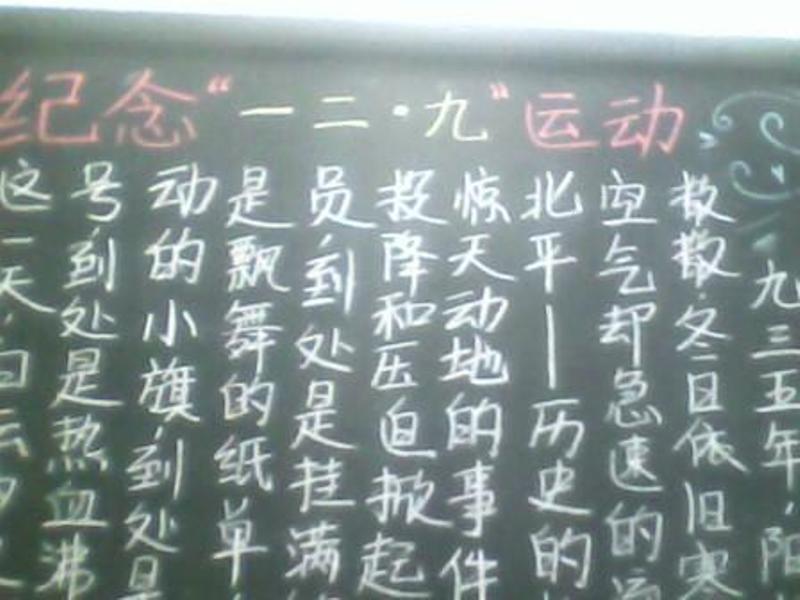 纪念“一二·九”运动
九三五年，阳
散散，冬日依旧寒
空气却急速的
北平—历史的
惊天动地的事件
投降和压迫掀起
员，到处是挂满
是飘舞的纸单
动的小旗，到处是
号，到处是热血沸
这一天，白云